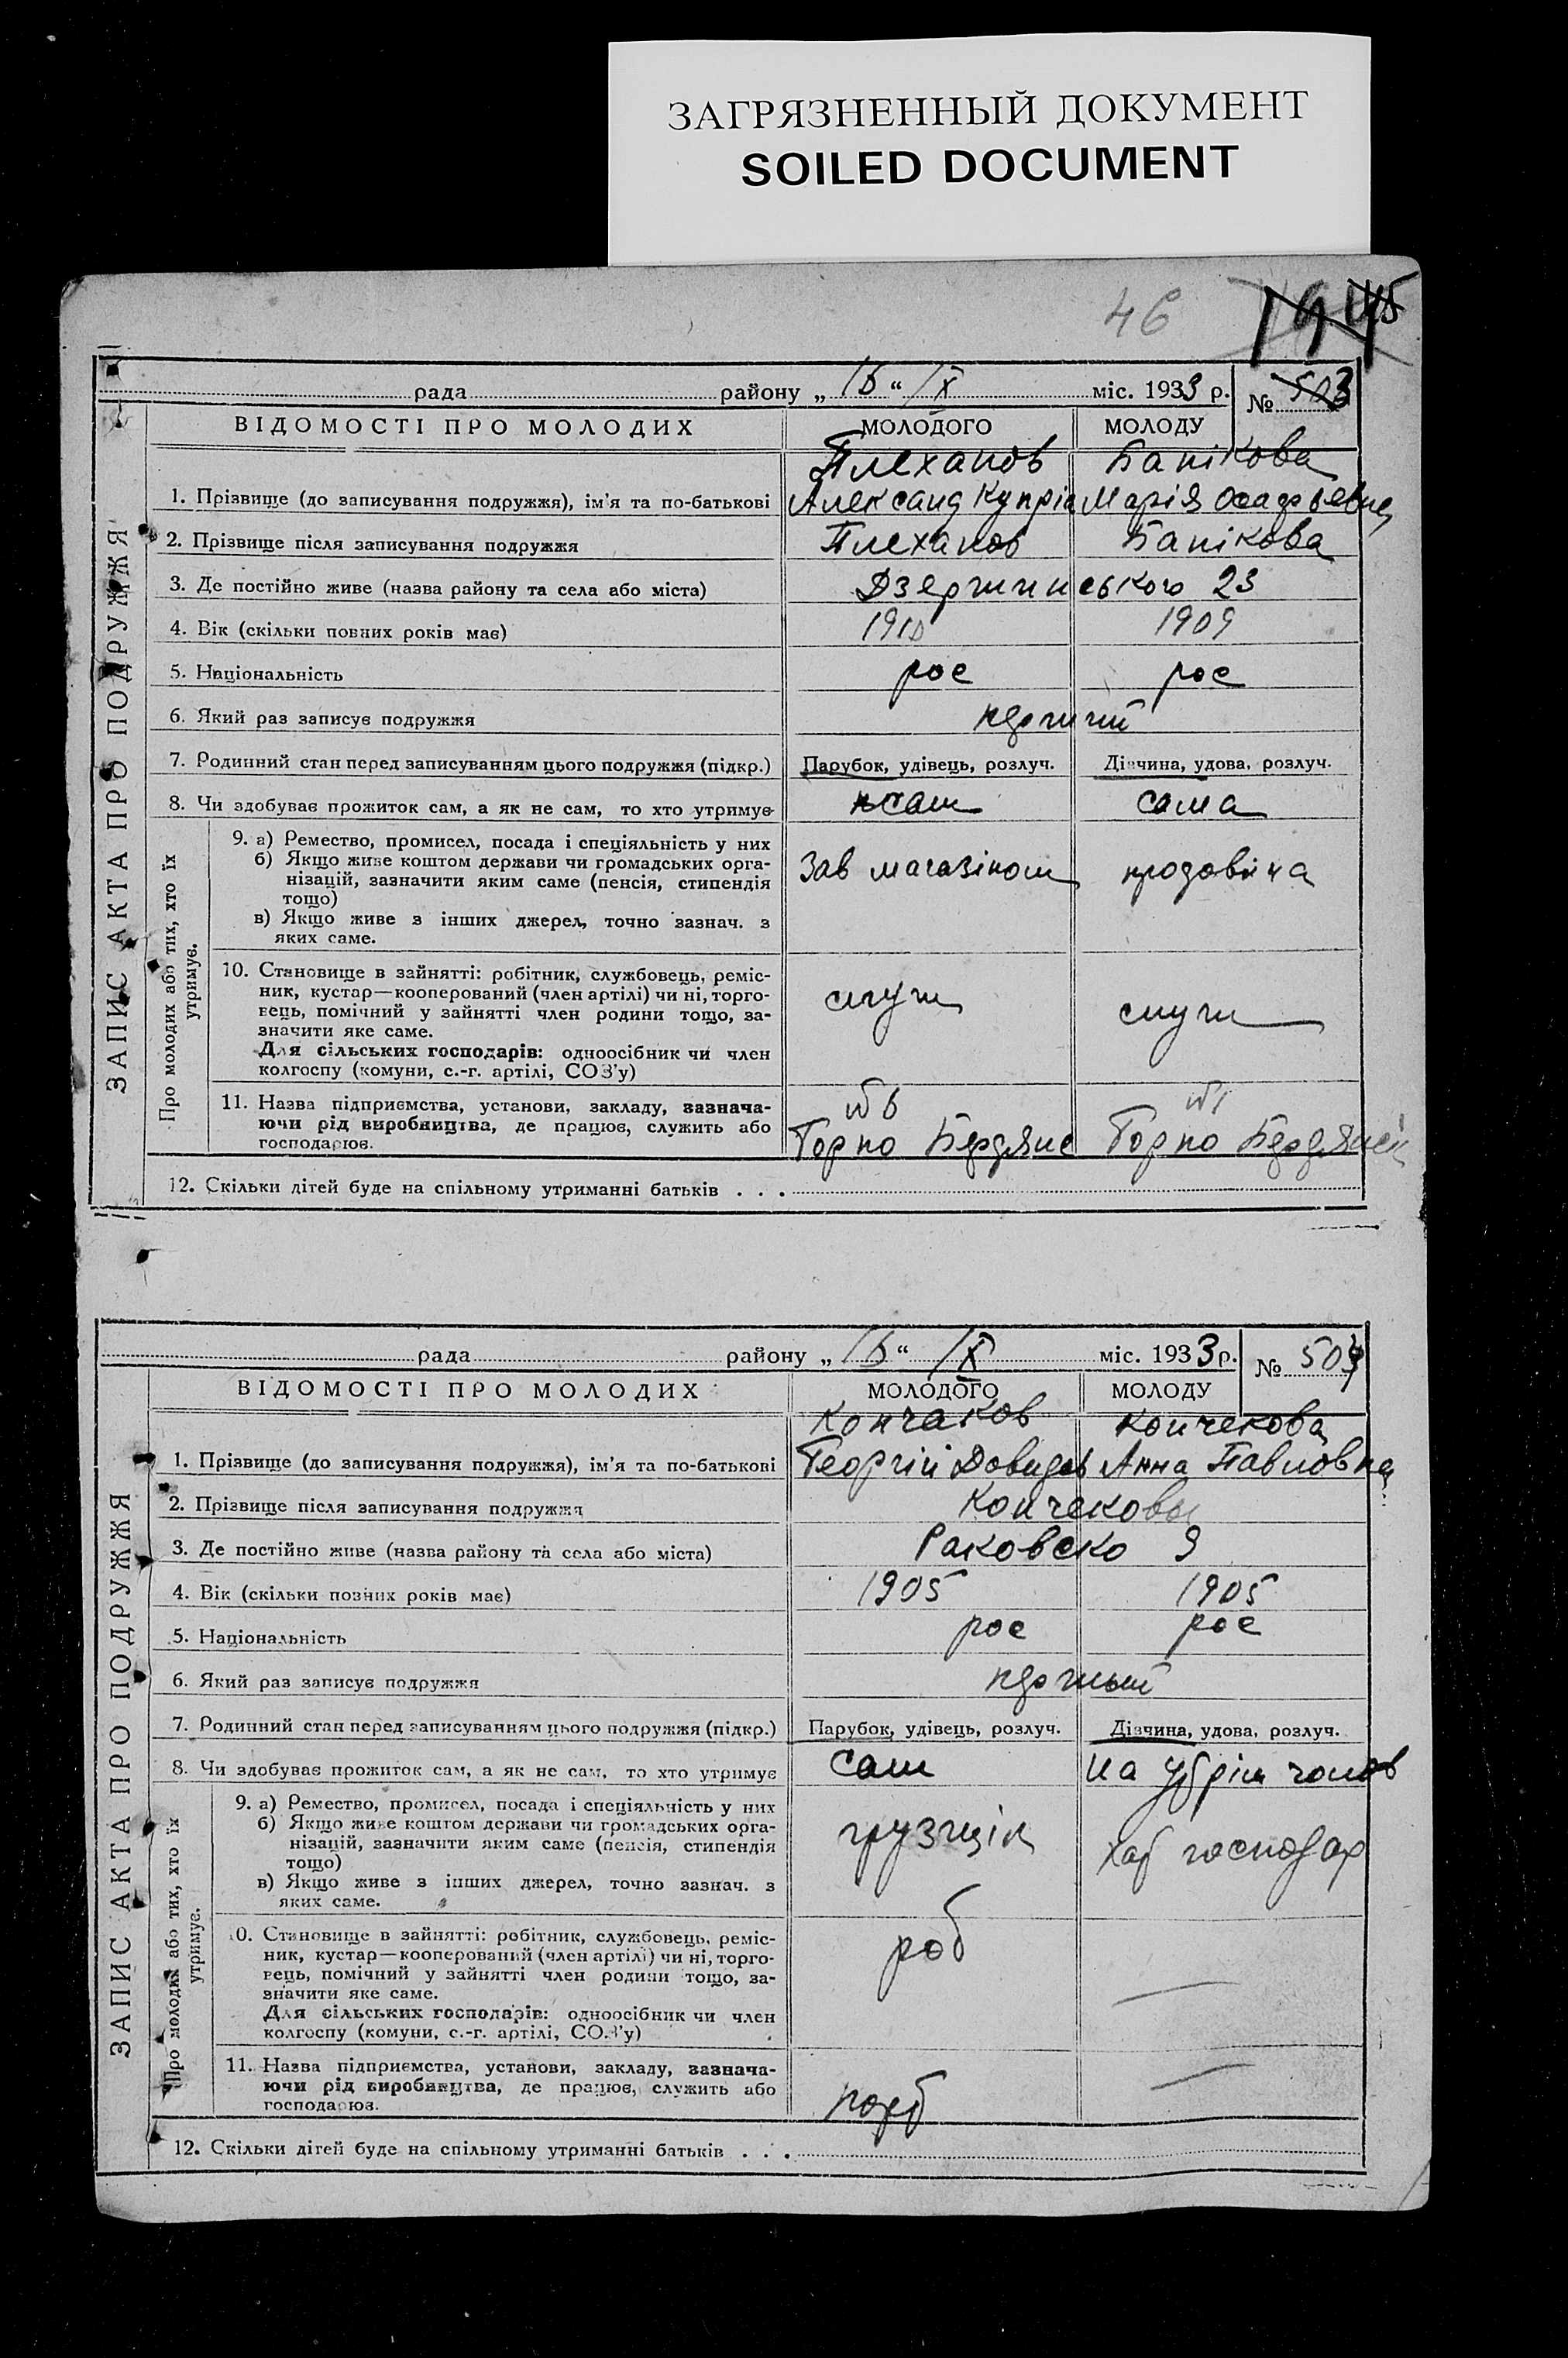 ЗАГРЯЗНЕННЫЙ ДОКУМЕНТ
SOILED DOCUMENT
46
рада району „ 15 “ IX міс. 1933 р. № 503
ВІДОМОСТІ ПРО МОЛОДИХ МОЛОДОГО МОЛОДУ
Плеханов Банікова
1. Прізвище (до записування подружжя), ім'я та по-батькові Александ Купріа Марія
2. Прізвище після записування подружжя Плеханов Банікова
3. Де постійно живе (назва району та села або міста) Дзержинського 23
4. Вік (скільки повних років має) 1910 1909
5. Національність рос рос
6. Який раз записує подружжя
7. Родинний стан перед записуванням цього подружжя (підкр.) Парубок, удівець, розлуч. Дівчина, удова, розлуч.
8. Чи здобуває прожиток сам, а як не сам, то хто утримує сам сама
9. а) Ремество, промисел, посада і спеціяльність у них
б) Якщо живе коштом держави чи громадських орга-
нізацій, зазначити яким саме (пенсія, стипендія
тощо)
Зав магазіном
в) Якщо живе з інших джерел, точно зазнач. з
яких саме.
10. Становище в зайнятті: робітник, службовець, реміс-
ник, кустар—кооперований (член артілі) чи ні, торго-
вець, помічний у зайнятті член родини тощо, за-
значити яке саме.
служ служ
Для сільських господарів: одноосібник чи член
колгоспу (комуни, с.-г. артілі, СОЗ'у)
11. Назва підприємства, установи, закладу, зазнача-
ючи рід виробництва, де працює, служить або
господарює.
№ 6 № 1
Горпо Бердянс Горпо Бердянськ
12. Скільки дітей буде на спільному утриманні батьків . . .
ЗАПИС АКТА ПРО ПОДРУЖЖЯ
Про молодих або тих, хто їх
утримує.
рада району „ 15 “ IX міс. 1933 р. № 504
ВІДОМОСТІ ПРО МОЛОДИХ МОЛОДОГО МОЛОДУ
Кончаков Кончекова
1. Прізвище (до записування подружжя), ім'я та по-батькові Георгій Давидов Анна Павловна
2. Прізвище після записування подружжя Кончекови
3. Де постійно живе (назва району та села або міста) Раковско 9
4. Вік (скільки повних років має) 1905 1905
5. Національність рос рос
6. Який раз записує подружжя
7. Родинний стан перед записуванням цього подружжя (підкр.) Парубок, удівець, розлуч. Дівчина, удова, розлуч.
8. Чи здобуває прожиток сам, а як не сам, то хто утримує сам на
9. а) Ремество, промисел, посада і спеціяльність у них
б) Якщо живе коштом держави чи громадських орга-
нізацій, зазначити яким саме (пенсія, стипендія
тощо)
грузщік господар
в) Якщо живе з інших джерел, точно зазнач. з
яких саме.
10. Становище в зайнятті: робітник, службовець, реміс-
ник, кустар—кооперований (член артілі) чи ні, торго-
вець, помічний у зайнятті член родини тощо, за-
значити яке саме.
роб
Для сільських господарів: одноосібник чи член
колгоспу (комуни, с.-г. артілі, СОЗ'у)
11. Назва підприємства, установи, закладу, зазнача-
ючи рід виробництва, де працює, служить або
господарює.
12. Скільки дітей буде на спільному утриманні батьків . . .
ЗАПИС АКТА ПРО ПОДРУЖЖЯ
Про молодих або тих, хто їх
утримує.